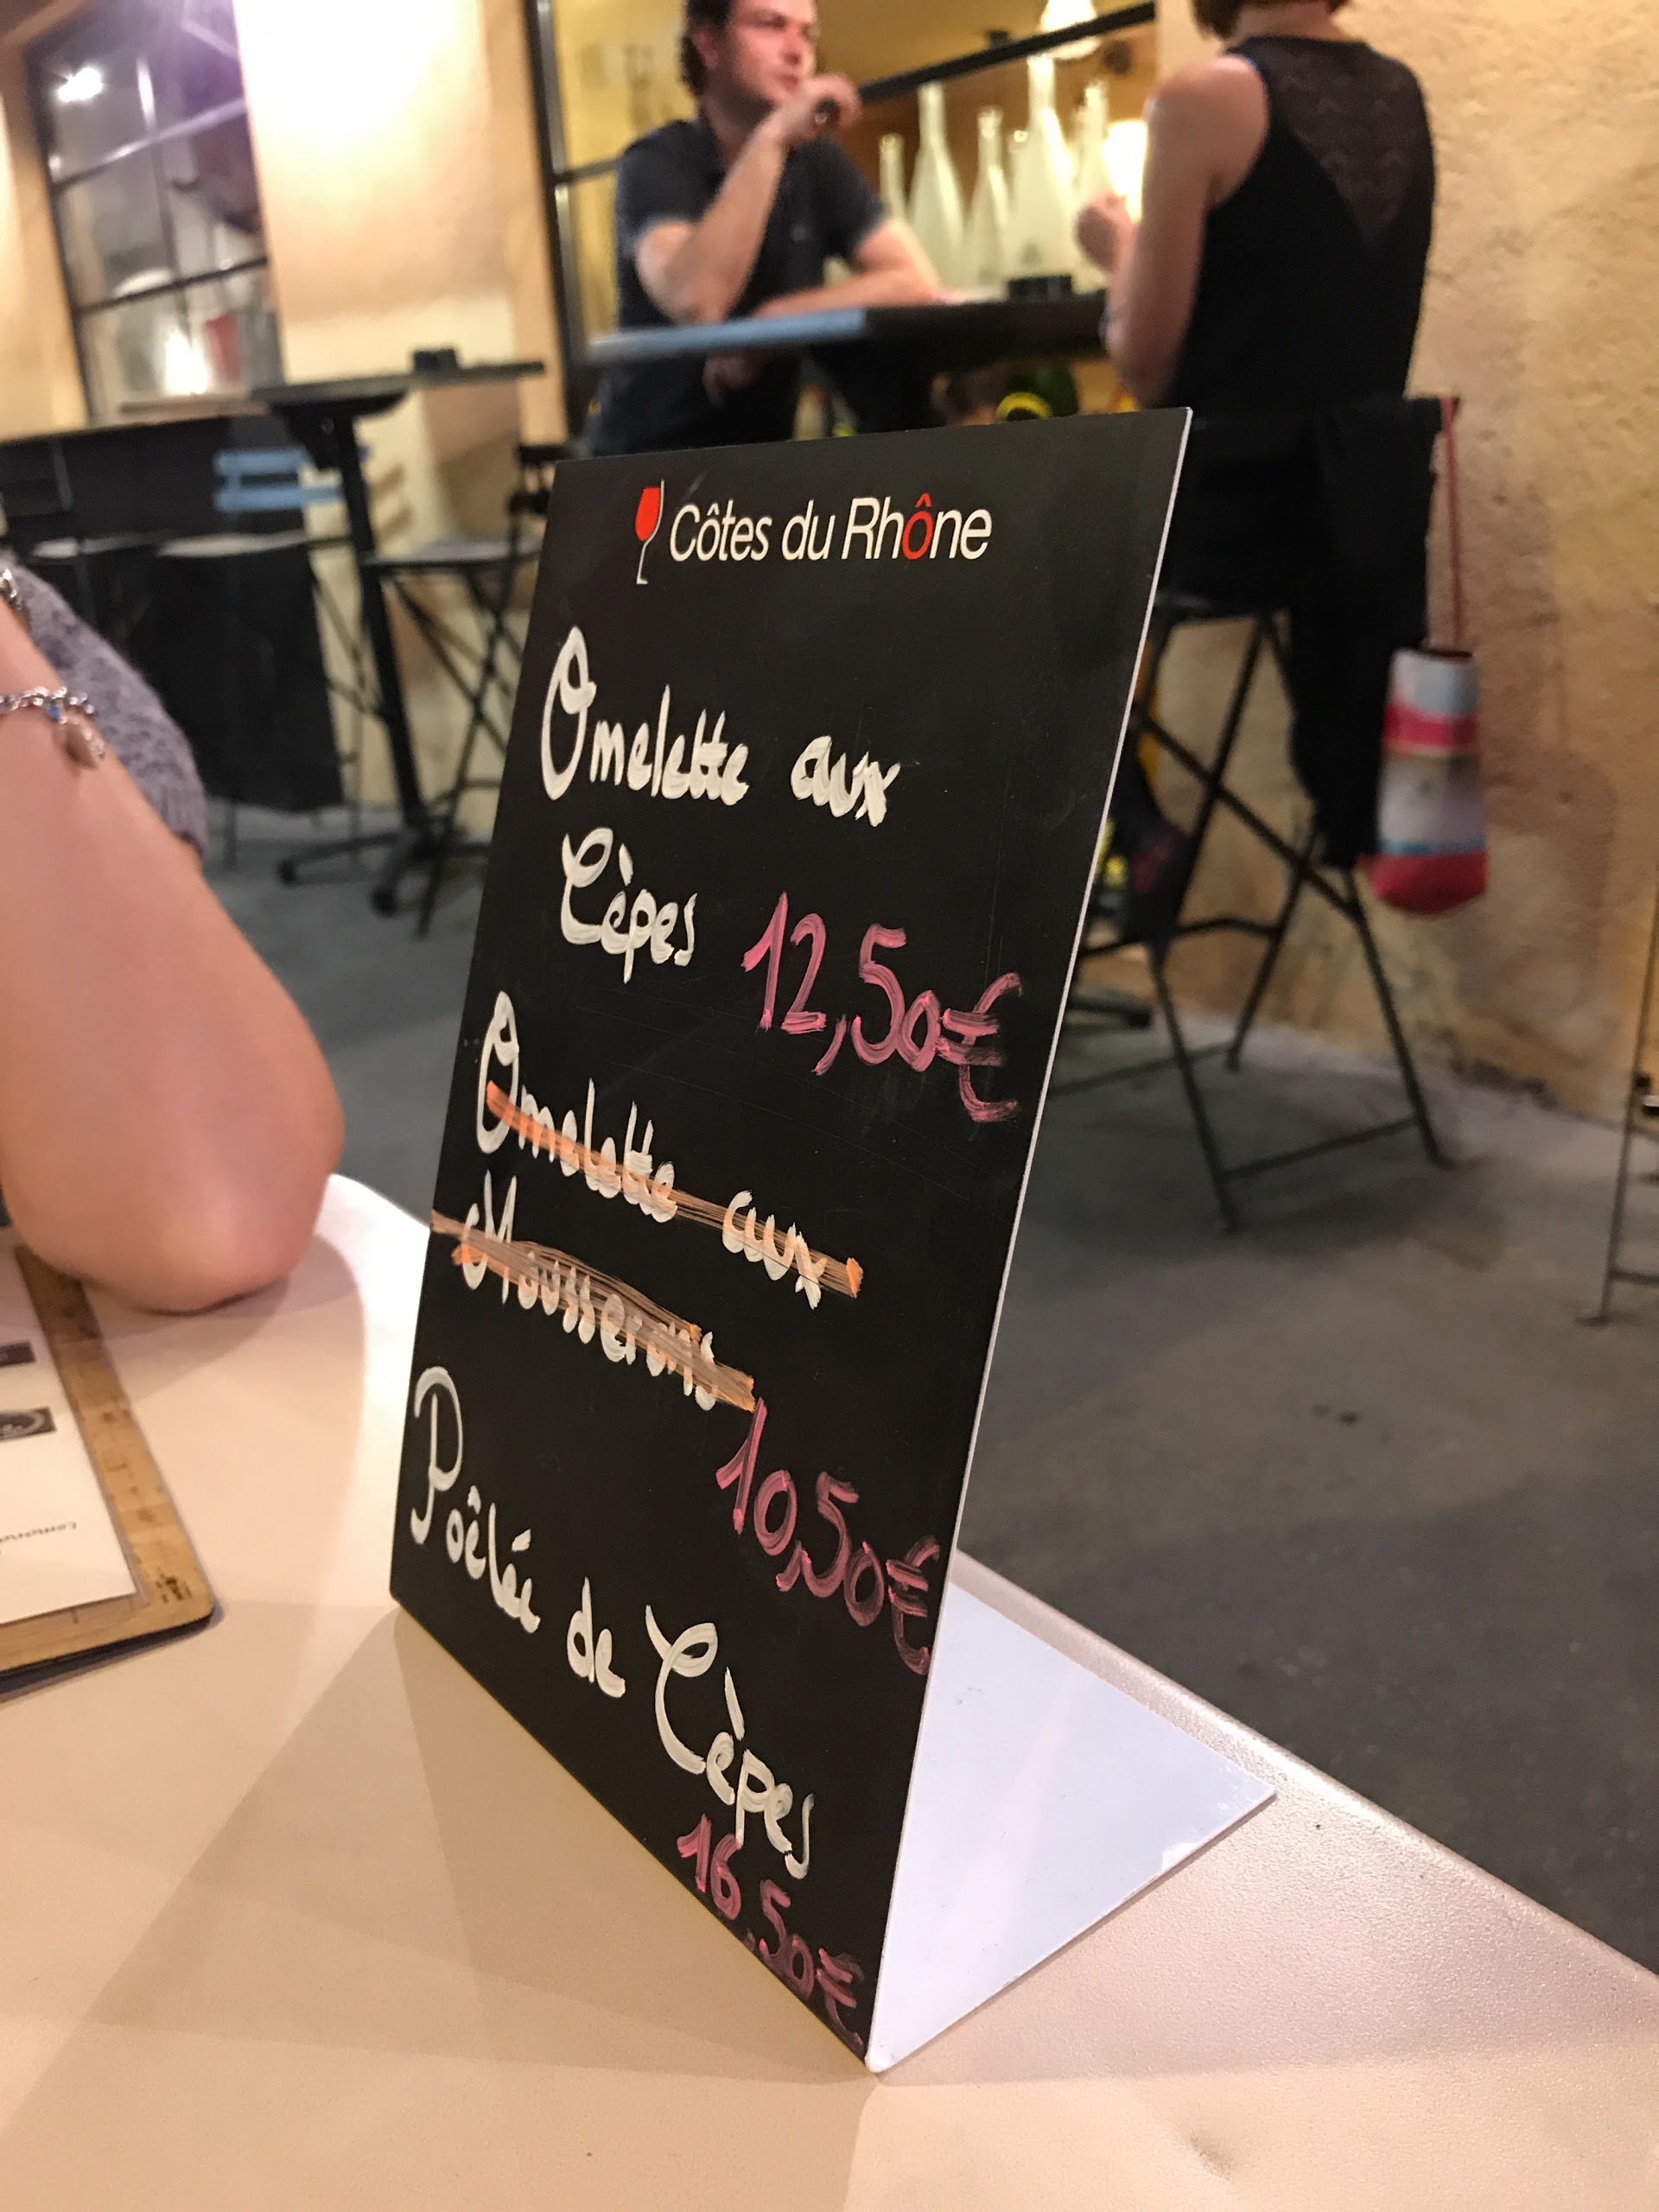 Côtes du Rhône
Omelette aux
Cèpes 12,50€
Omelette aux
Mousserons
10,50€
Poêlée de Cèpes
16,50€